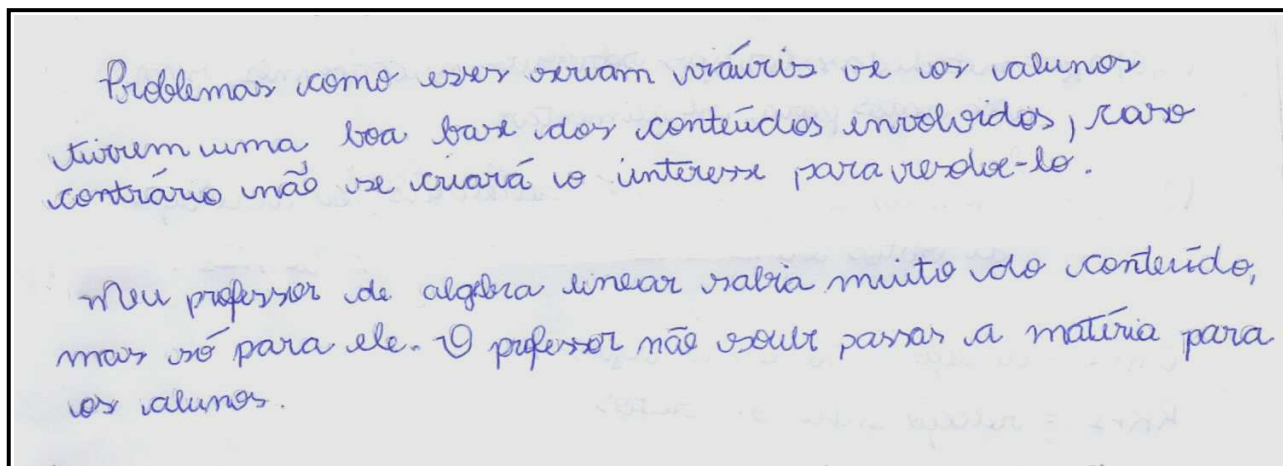 Problemas como esses seriam viáveis se os alunos
tiverem uma boa base dos conteúdos envolvidos, caso
contrário não se criará o interesse para resolve-lo.
Meu professor de algebra linear sabia muito do conteúdo,
mas só para ele. O professor não soube passar a matéria para
os alunos.